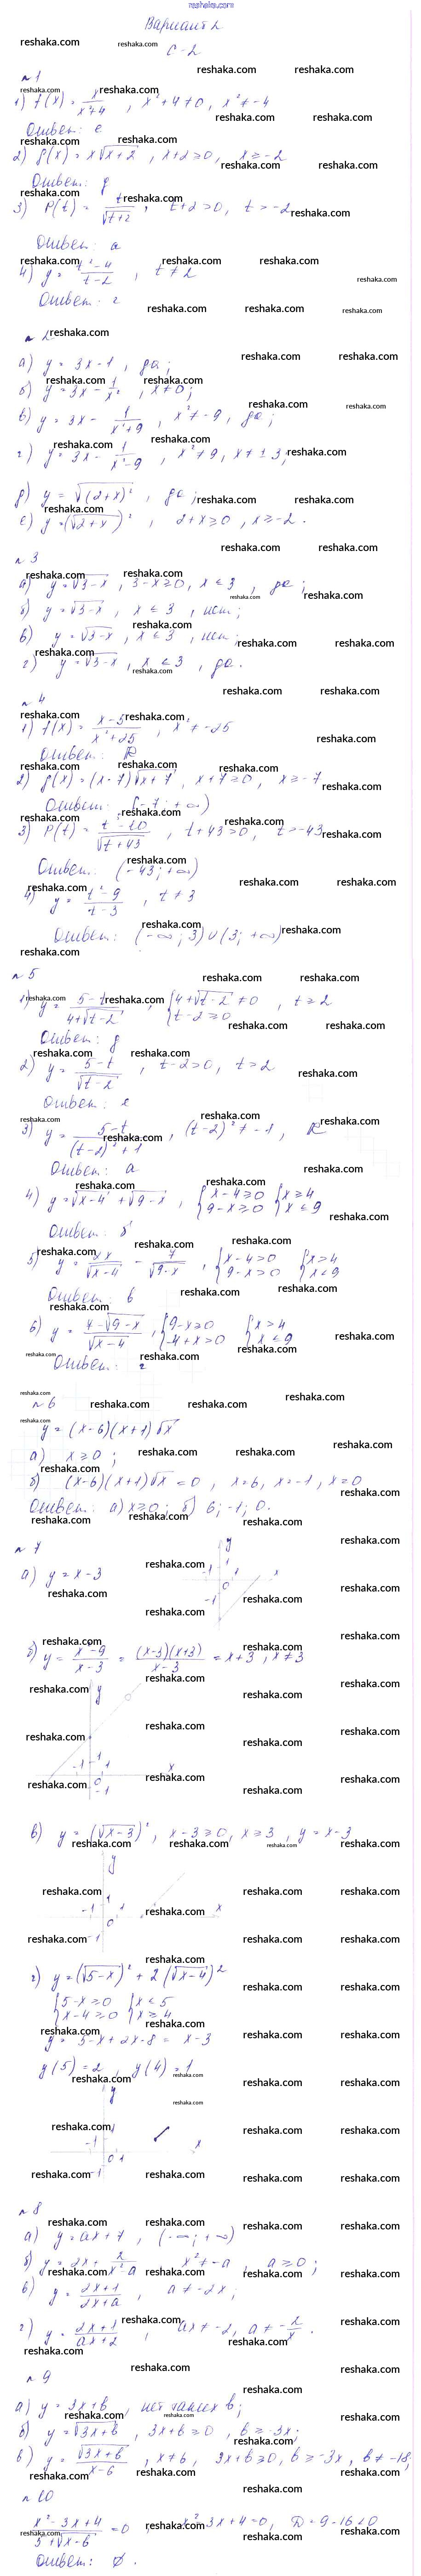 reshaka.com
Вариант 2
С-2
№1
1) f(x) = x/(x²+4), x²+4≠0, x²≠-4
Ответ: е
2) g(x) = x√(x+2), x+2≥0, x≥-2
Ответ: д
3) P(t) = t/√(t+2), t+2>0, t>-2
Ответ: а
4) y = (t²-4)/(t-2), t≠2
Ответ: г
№2
а) y = 3x-1, да;
б) y = 3x - 1/x², x≠0;
в) y = 3x - 1/(x²+9), x²≠-9, да;
г) y = 3x - 1/(x²-9), x²≠9, x≠±3;
д) y = √(2+x)², да;
е) y = (√(2+x))², 2+x≥0, x≥-2.
№3
а) y = √(3-x), 3-x≥0, x≤3, да;
б) y = √(3-x), x≤3, нет;
в) y = √(3-x), x≤3, нет;
г) y = √(3-x), x≤3, да.
№4
1) f(x) = (x-5)/(x²+25), x²≠-25
Ответ: R
2) g(x) = (x-7)√(x+7), x+7≥0, x≥-7
Ответ: [-7; +∞)
3) P(t) = (t²-10)/√(t+43), t+43>0, t>-43
Ответ: (-43; +∞)
4) y = (t²-9)/(t-3), t≠3
Ответ: (-∞; 3)∪(3; +∞)
№5
1) y = (5-t)/(4+√(t-2)), {4+√(t-2)≠0 t-2≥0, t≥2
Ответ: д
2) y = (5-t)/√(t-2), t-2>0, t>2
Ответ: е
3) y = (5-t)/((t-2)²+1), (t-2)²≠-1, R
Ответ: а
4) y = √(x-4) + √(9-x), {x-4≥0 9-x≥0 {x≥4 x≤9
Ответ: б
5) y = 2x/√(x-4) - 7/√(9-x), {x-4>0 9-x>0 {x>4 x<9
Ответ: в
6) y = (4-√(9-x))/√(x-4), {9-x≥0 -4+x>0 {x>4 x≤9
Ответ: г
№6
y = (x-6)(x+1)√x
а) x≥0;
б) (x-6)(x+1)√x = 0, x=6, x=-1, x=0
Ответ: а) x≥0; б) 6; -1; 0.
№7
а) y = x-3
б) y = (x²-9)/(x-3) = (x-3)(x+3)/(x-3) = x+3, x≠3
в) y = (√(x-3))², x-3≥0, x≥3, y = x-3
г) y = (√(5-x))² + 2(√(x-4))²
{5-x≥0 x-4≥0 {x≤5 x≥4
y = 5-x+2x-8 = x-3
y(5)=2, y(4)=1
№8
а) y = ax+7, (-∞; +∞)
б) y = 2x + 2/(x²-a), x²≠-a, a≥0;
в) y = (2x+1)/(2x+a), a≠-2x;
г) y = (2x+1)/(ax+2), ax≠-2, a≠-2/x.
№9
а) y = 3x+b, нет таких b;
б) y = √(3x+b), 3x+b≥0, b≥-3x;
в) y = √(3x+b)/(x-6), x≠6, 3x+b≥0, b≥-3x, b≠-18;
№10
(x²-3x+4)/(5+√(x-6)) = 0, x²-3x+4=0, D=9-16<0
Ответ: ∅.